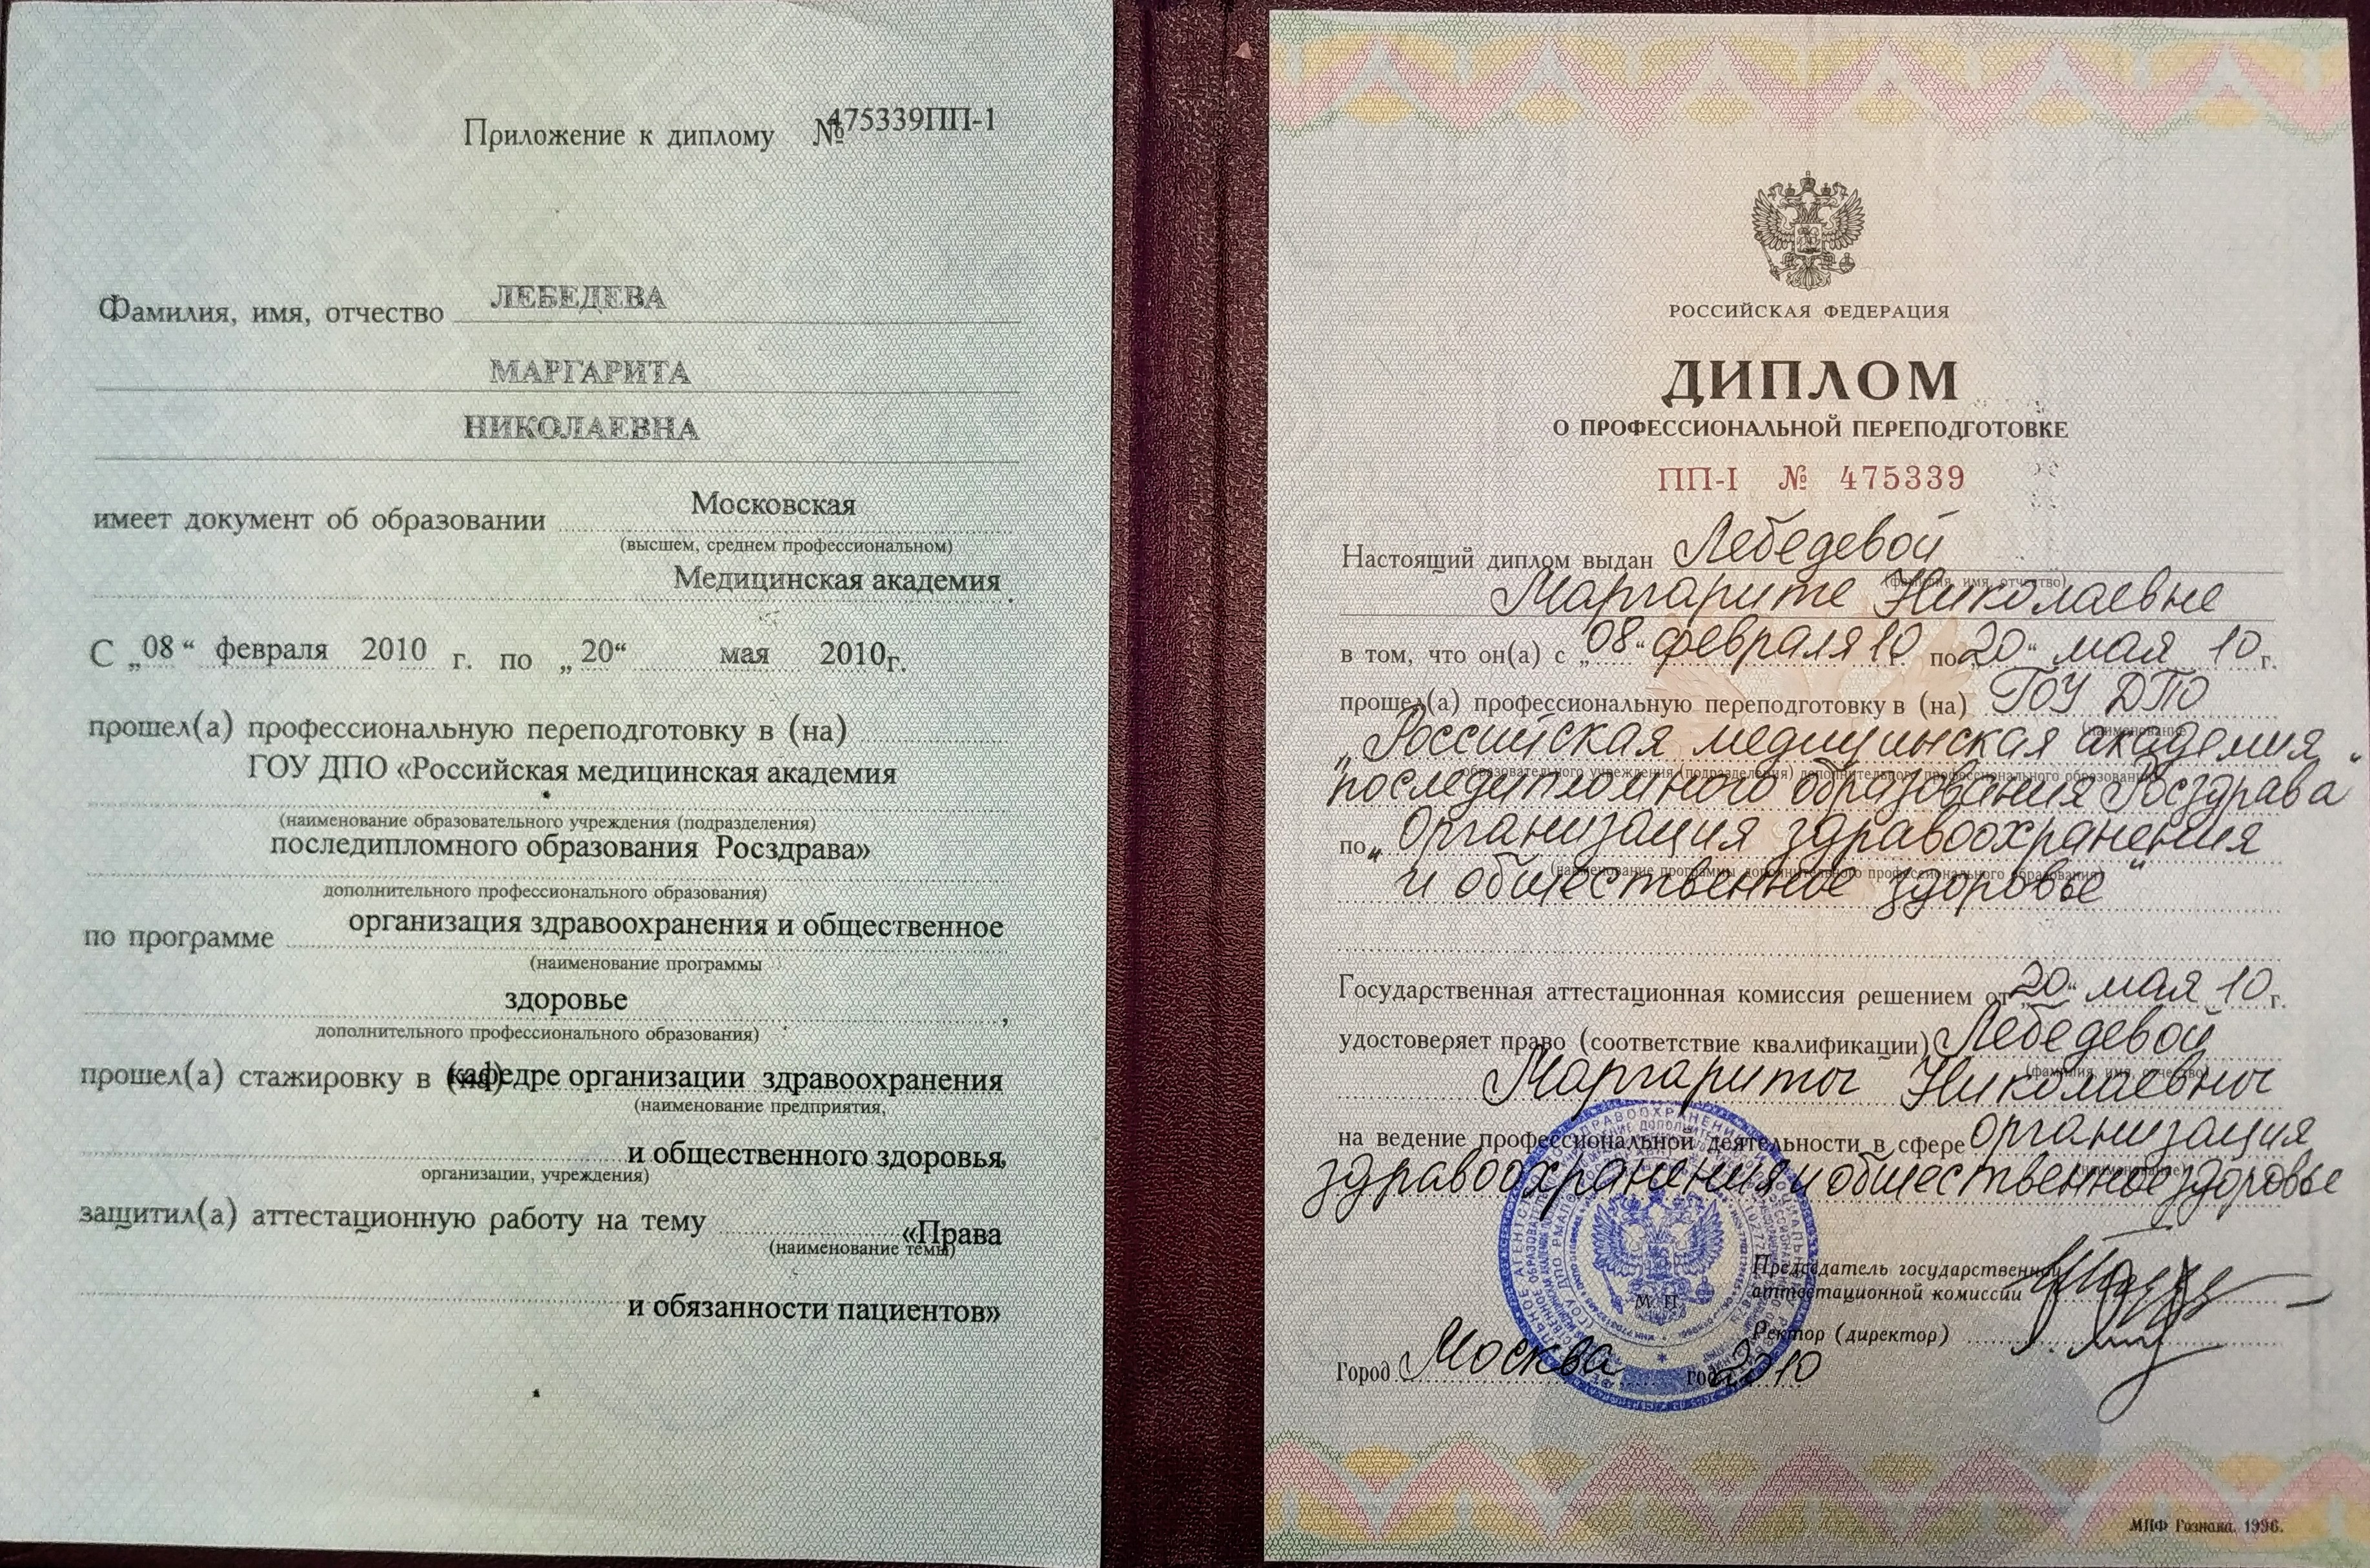 Приложение к диплому № 475339ПП-1
Фамилия, имя, отчество ЛЕБЕДЕВА
МАРГАРИТА
НИКОЛАЕВНА
имеет документ об образовании Московская
(высшем, среднем профессиональном)
Медицинская академия
С „08“ февраля 2010 г. по „20“ мая 2010г.
прошел(а) профессиональную переподготовку в (на)
ГОУ ДПО «Российская медицинская академия
(наименование образовательного учреждения (подразделения)
последипломного образования Росздрава»
дополнительного профессионального образования)
по программе организация здравоохранения и общественное
(наименование программы
здоровье,
дополнительного профессионального образования)
прошел(а) стажировку в (на) кафедре организации здравоохранения
(наименование предприятия,
и общественного здоровья,
организации, учреждения)
защитил(а) аттестационную работу на тему «Права
(наименование темы)
и обязанности пациентов»
РОССИЙСКАЯ ФЕДЕРАЦИЯ
ДИПЛОМ
О ПРОФЕССИОНАЛЬНОЙ ПЕРЕПОДГОТОВКЕ
ПП-I № 475339
Настоящий диплом выдан Лебедевой
(фамилия, имя, отчество)
Маргарите Николаевне
в том, что он(а) с „08“ февраля 10 г. по „20“ мая 10 г.
прошел(а) профессиональную переподготовку в (на) ГОУ ДПО
(наименование
„Российская медицинская академия
образовательного учреждения (подразделения) дополнительного профессионального образования)
последипломного образования Росздрава“
по „Организация здравоохранения
(наименование программы дополнительного профессионального образования)
и общественное здоровье“
Государственная аттестационная комиссия решением от „20“ мая 10 г.
удостоверяет право (соответствие квалификации) Лебедевой
(фамилия, имя, отчество)
Маргариты Николаевны
на ведение профессиональной деятельности в сфере организация
(наименование)
здравоохранения и общественное здоровье
Председатель государственной
аттестационной комиссии
М. П.
Ректор (директор)
Город Москва год 2010
МПФ Гознака. 1996.